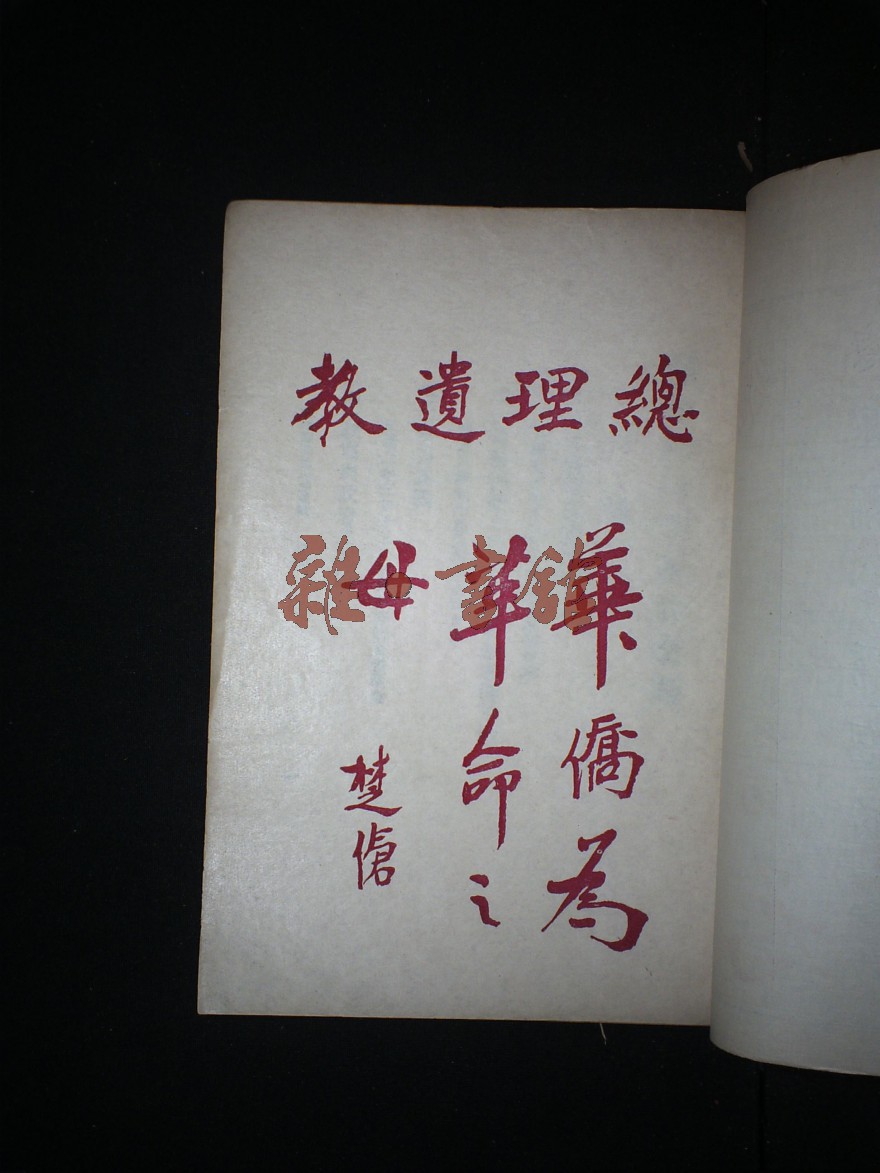 總理遺教
華僑為
革命之
母
楚傖
雜·書館